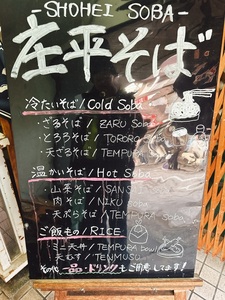 -SHOHEI SOBA-
庄平そば
冷たいそば/Cold Soba
・ざるそば/ZARU Soba
・とろろそば/TORORO
・天ざるそば/TEMPURA
温かいそば/Hot Soba
・山菜そば/SANS
・肉そば/NIKU
・天ぷらそば/TEMPURA Soba
ご飯もの/RICE
・ミニ天丼/TEMPURA bowl
・天むす/TENMUSU
その他、一品・ドリンクもご用意してます!